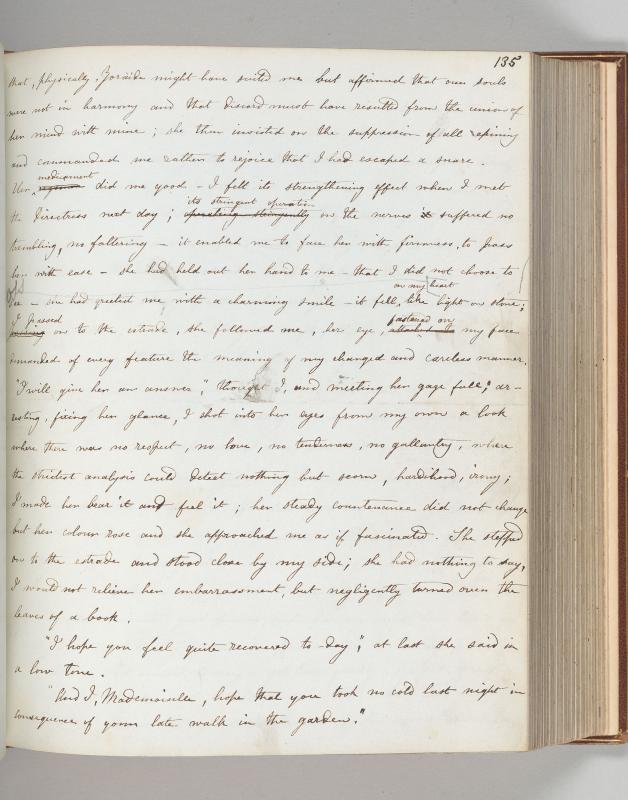 135
that, physically, Zoraïde might have suited me but affirmed that our souls
were not in harmony and that discord must have resulted from the union of
her mind with mine ; she then insisted on the suppression of all repining
and commanded me rather to rejoice that I had escaped a snare .
medicament
Her did me good – I felt its strengthening effect when I met
its stringent operation
the Directress next day ; operating stringently on the nerves suffered no
trembling, no faltering – it enabled me to face her with firmness, to pass
her with ease – she had held out her hand to me – that I did not choose to
on my heart
see – she had greeted me with a charming smile – it fell, like light on stone ;
I passed fastened on
passing on to the estrade , she followed me , her eye, my face
demanded of every feature the meaning of my changed and careless manner.
"I will give her an answer", thought I, and meeting her gaze full, ar-
resting, fixing her glance, I shot into her eyes from my own a look
where there was no respect , no love , no tenderness, no gallantry, where
the strictest analysis could detect nothing but scorn, hardihood, irony ;
I made her bear it and feel it ; her steady countenance did not change
but her colour rose and she approached me as if fascinated . She stepped
on to the estrade and stood close by my side ; she had nothing to say,
I would not relieve her embarrassment, but negligently turned over the
leaves of a book .
"I hope you feel quite recovered to-day", at last she said in
a low tone .
"And I, Mademoiselle , hope that you took no cold last night in
consequence of your late walk in the garden ."